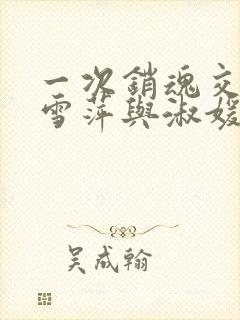 一次銷魂交
雪萍與淑媛
吴成翰